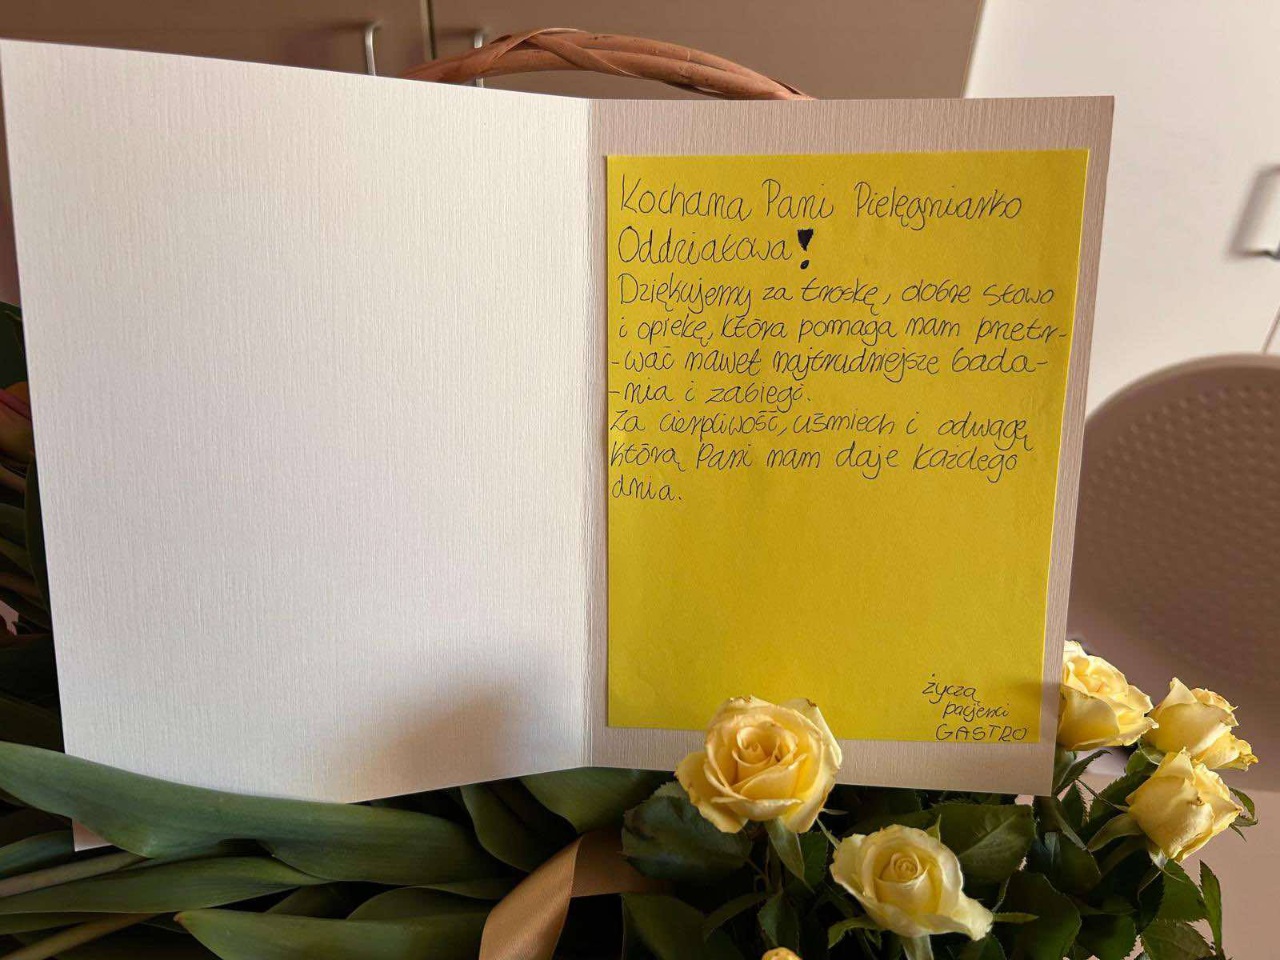 Kochana Pani Pielęgniarko
Oddziałowa!
Dziękujemy za troskę, dobre słowo
i opiekę, która pomaga nam przetr-
-wać nawet najtrudniejsze bada-
-nia i zabiegi.
Za cierpliwość, uśmiech i odwagę
którą Pani nam daje każdego
dnia.
życzą
pacjenci
GASTRO